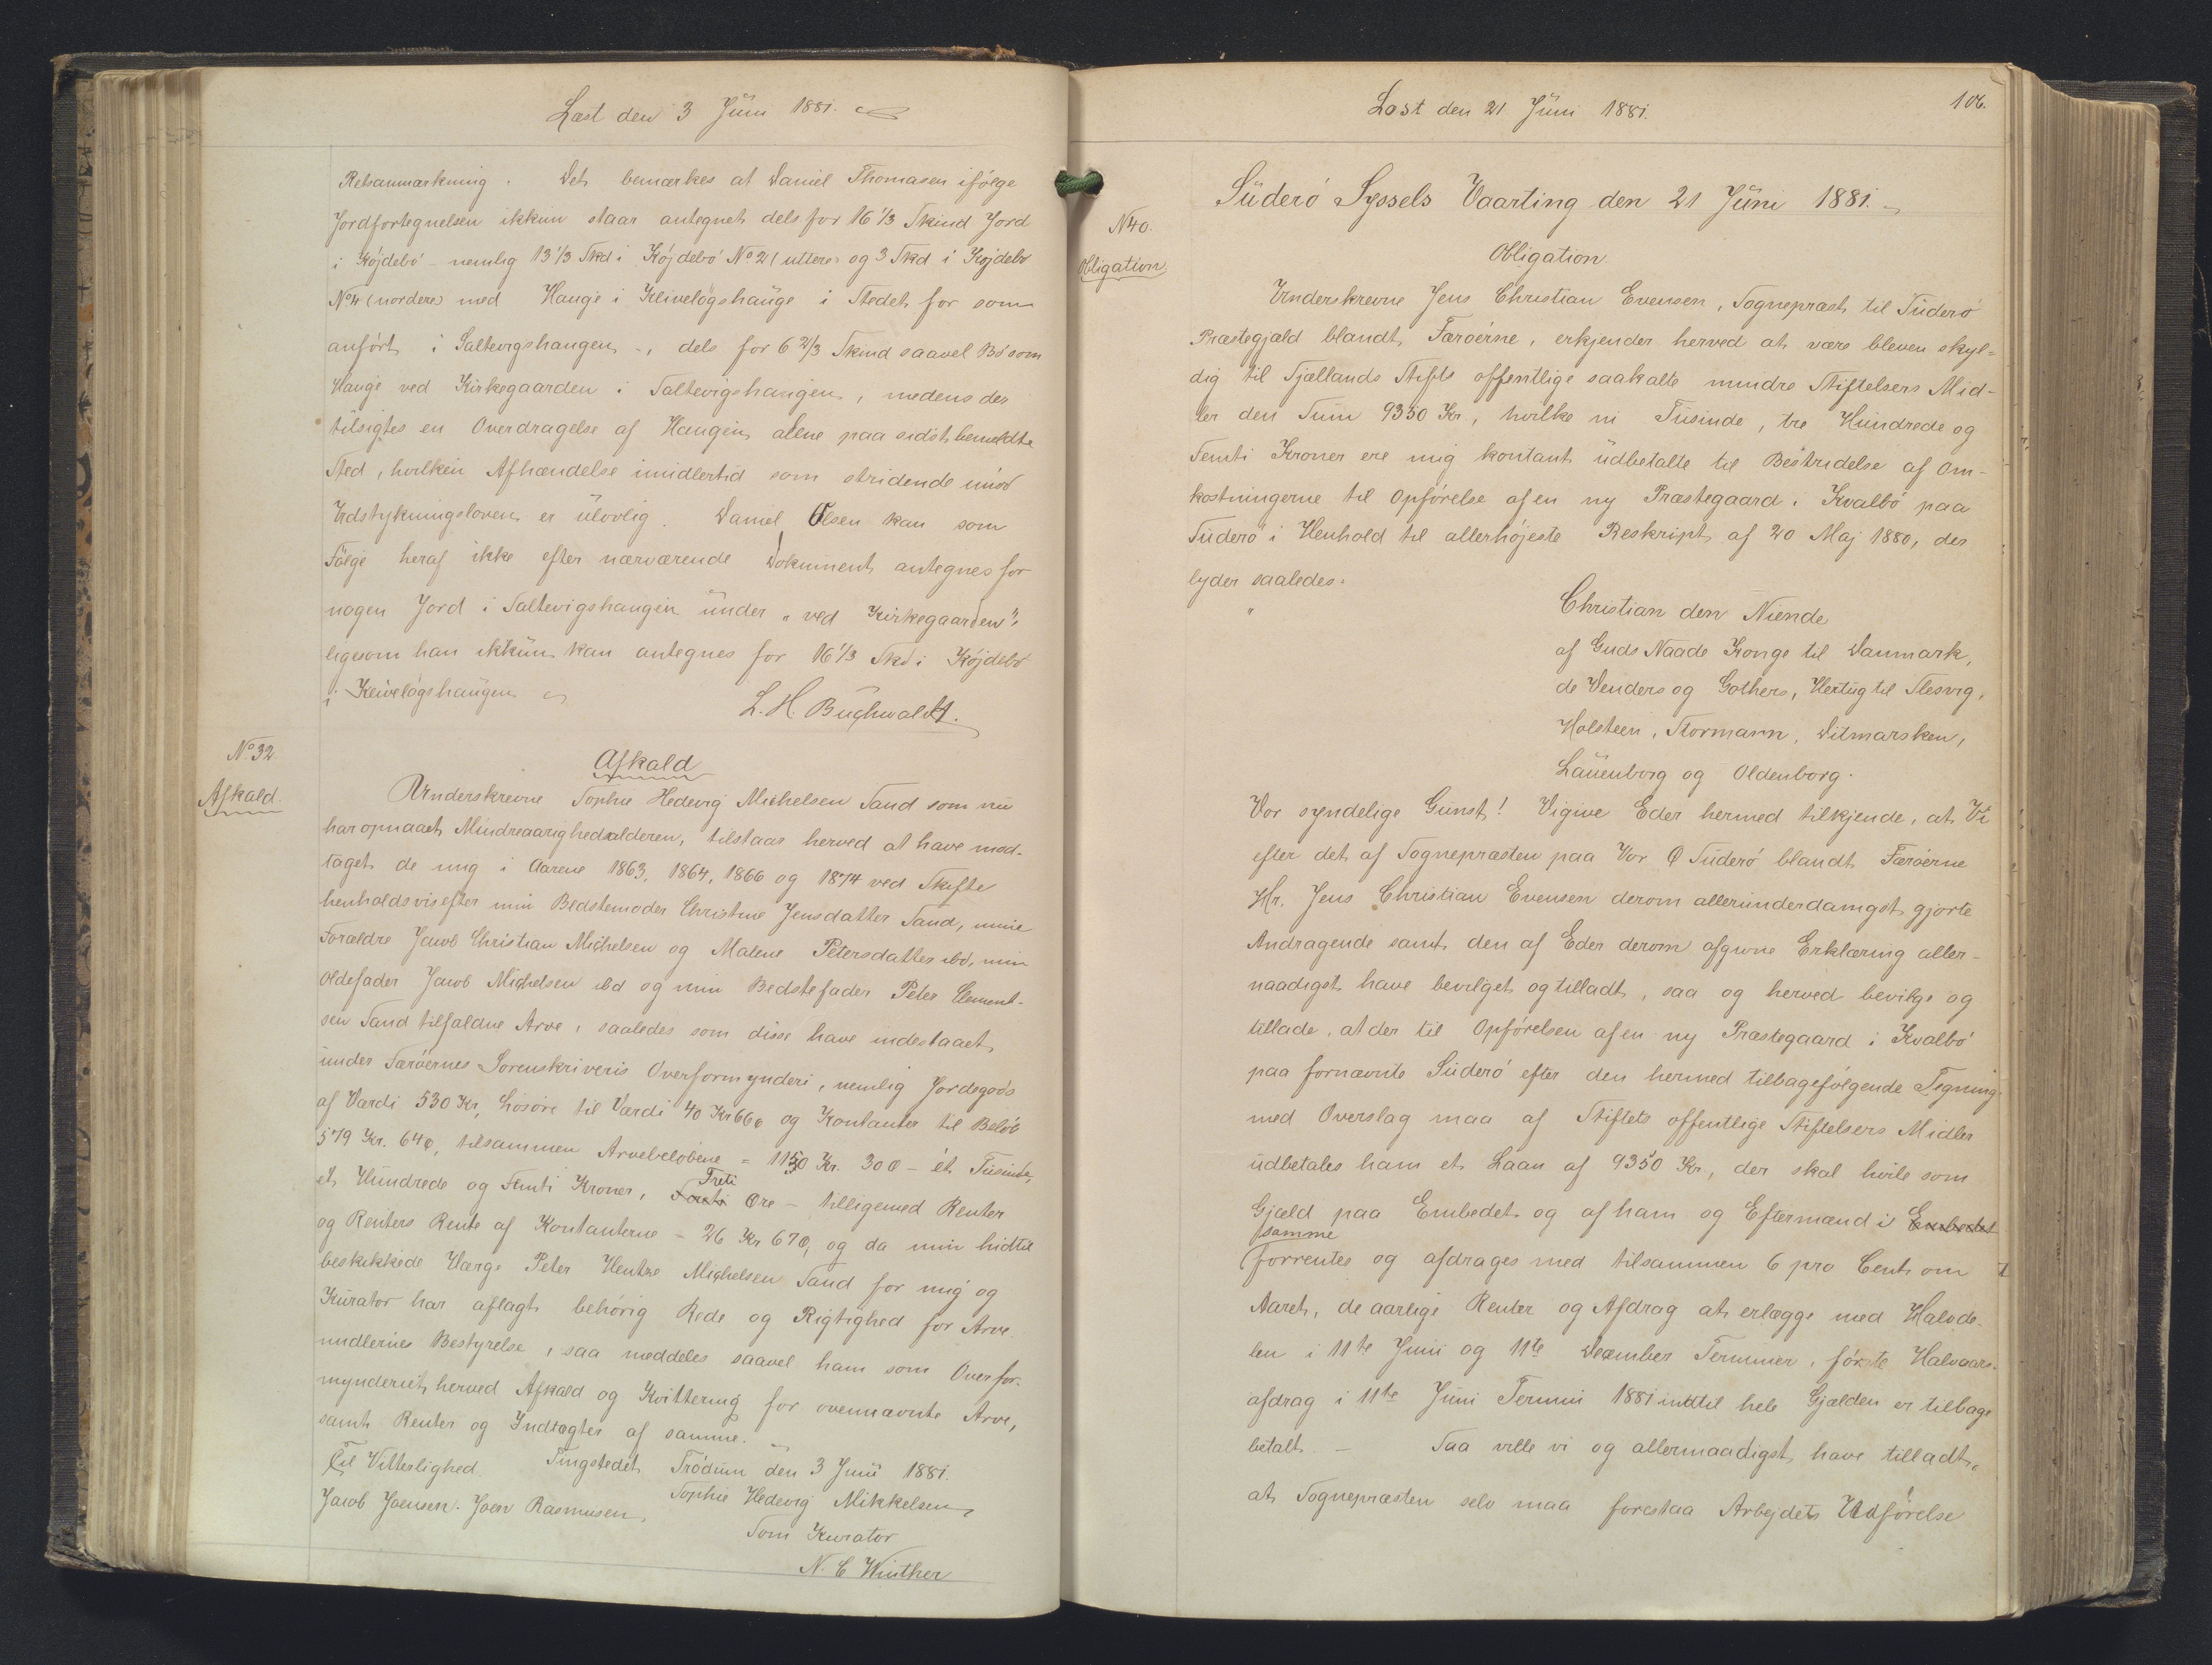 Læst den 3 Jŭni 1881.
Retsanmærkning. Det bemærkes at Daniel Thomasen ifølge
Jordfortegnelsen ikkun staar antegnet dels for 16 1/3 Skind Jord
i Kójdebó - nemlig 13 1/3 Skd i Kójdebó No 2 (uttere) og 3 Skd i Kojdebó
No 4 (nordere) med Hauge i Kliveløgshaŭge i Stedet for som
anført i Saltevigshaugen -, dels for 6 2/3 Skind saavel Bø som
Hauge ved Kirkegaarden i Saltevigshaŭgen, medens der
tilsigtes en Overdragelse af Haugen alene paa sidst bemeldte
Sted, hvilken Afhændelse imidlertid som stridende imod
Udstykningsloven er ŭlovlig. Daniel Olsen kan som
Følge heraf ikke efter nærværende Dokument antegnes for
nogen Jord i Saltevigshaugen ŭnder "ved Kirkegaarden",
ligesom han ikkŭn kan antegnes for 16 1/3 Skd i Kójdebó
i Kliveløgshaŭgen
L. H. Bŭchwaldt.
No 32
Afkald.
Afkald
Underskrevne Sophie Hedevig Michelsen Sand som nŭ
har opnaaet Mindreaarighedsalderen, tilstaar herved at have mod-
taget de mig i Aarene 1863, 1864, 1866 og 1874 ved Skifte
henholdsvis efter min Bedstemoder Christine Jensdatter Sand, mine
Forældre Jacob Christian Michelsen og Malene Petersdatter ibd, min
Oldefader Jacob Michelsen ibd og min Bedstefader Peter Clement-
sen Sand tilfaldne Arve, saaledes som disse have indestaaet
ŭnder Færøernes Sorenskriveris Overformynderi, nemlig Jordegods
af Værdi 530 Kr, Løsøre til Værdi 40 Kr 66 Ø og Kontanter til Beløb
579 Kr. 64 Ø, tilsammen Arvebeløbene = 1150 Kr. 30 Ø - ét Tŭsinde,
et Hŭndrede og Femti Kroner, Femti Treti Øre - tilligemed Renter
og Renters Rente af Kontanterne - 26 Kr 67 Ø, og da min hidtil
beskikkede Værge Peter Hentze Michelsen Sand for mig og
Kŭrator har aflagt behørig Rede og Rigtighed for Arve-
midlernes Bestyrelse, saa meddeles saavel ham som Overfor-
mynderiet herved Afkald og Kvittering for ovennævnte Arve,
samt Renter og Indtægter af samme.
Tingstedet Trødŭm den 3 Jŭni 1881.
Til Vitterlighed. Sophie Hedevig Mikkelsen
Jacob Joensen. Joen Rasmusen
Som Kurator
N. C Winther
Læst den 21 Jŭni 1881.
106.
Sŭderó Syssels Vaarting den 21 Jŭni 1881.
N 40.
Obligation.
Obligation
Underskrevne Jens Christian Evensen, Sognepræst til Sŭderó
Præstegjæld blandt Færøerne, erkjender herved at være bleven skyl=
dig til Sjællands Stifts offentlige saakalte mindre Stiftelsers Mid-
ler den Sŭm 9350 Kr., hvilke ni Tŭsinde, tre Hŭndrede og
Femti Kroner ere mig kontant ŭdbetalte til Bestridelse af Om-
kostningerne til Opførelse af en ny Præstegaard i Kvalbó paa
Sŭderó i Henhold til allerhøjeste Reskript af 20 Maj 1880, der
lyder saaledes:
"
Christian den Niende
af Guds Naade Konge til Danmark,
de Venders og Gothers, Hertŭg til Slesvig,
Holsteen, Stormarn, Ditmarsken,
Laŭenborg og Oldenborg.
Vor syndelige Gŭnst! Vi give Eder hermed tilkjende, at Vi
efter det af Sognepræsten paa Vor Ø Sŭderó blandt Færøerne
Hr. Jens Christian Evensen derom allerŭnderdanigst gjorte
Andragende samt den af Eder derom afgivne Erklæring aller-
naadigst have bevilget og tilladt, saa og herved bevilge og
tillade, at der til Opførelsen af en ny Præstegaard i Kvalbó
paa fornævnte Sŭderó efter den hermed tilbagefølgende Tegning
med Overslag maa af Stiftets offentlige Stiftelsers Midler
ŭdbetales ham et Laan af 9350 Kr., der skal hvile som
Gjæld paa Embedet og af ham og Eftermænd i Embedet
samme
forrentes og afdrages med tilsammen 6 pro Cent om
Aaret, de aarlige Renter og Afdrag at erlægge med Halvde-
len i 11te Juni og 11te December Terminer, første Halvaars-
afdrag i 11te Jŭni Termin 1881 indtil hele Gjælden er tilbage
betalt. - Saa ville vi og allernaadigst have tilladt,
at Sognepræsten selv maa forestaa Arbejdets Udførelse